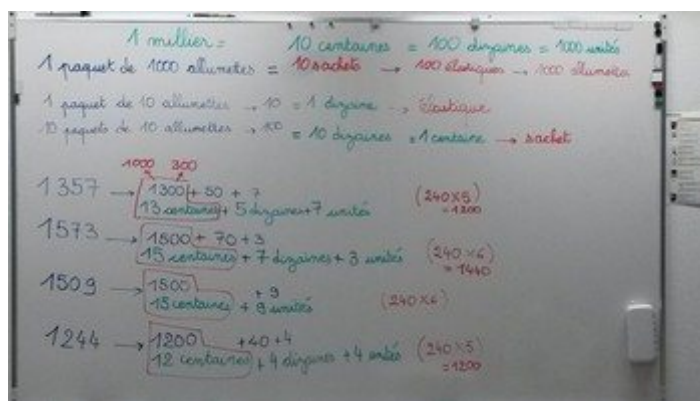 1 millier = 10 centaines = 100 dizaines = 1000 unités
1 paquet de 1000 allumettes = 10 sachets → 100 élastiques → 1000 allumettes
1 paquet de 10 allumettes → 10 = 1 dizaine → élastique
10 paquets de 10 allumettes → 100 = 10 dizaines = 1 centaine → sachet
1000 300
1357 → 1300 + 50 + 7
13 centaines + 5 dizaines + 7 unités
(240 × 5)
= 1200
1573 → 1500 + 70 + 3
15 centaines + 7 dizaines + 3 unités
(240 × 6)
= 1440
1509 → 1500 + 9
15 centaines + 9 unités
(240 × 6)
1244 → 1200 + 40 + 4
12 centaines + 4 dizaines + 4 unités
(240 × 5)
= 1200